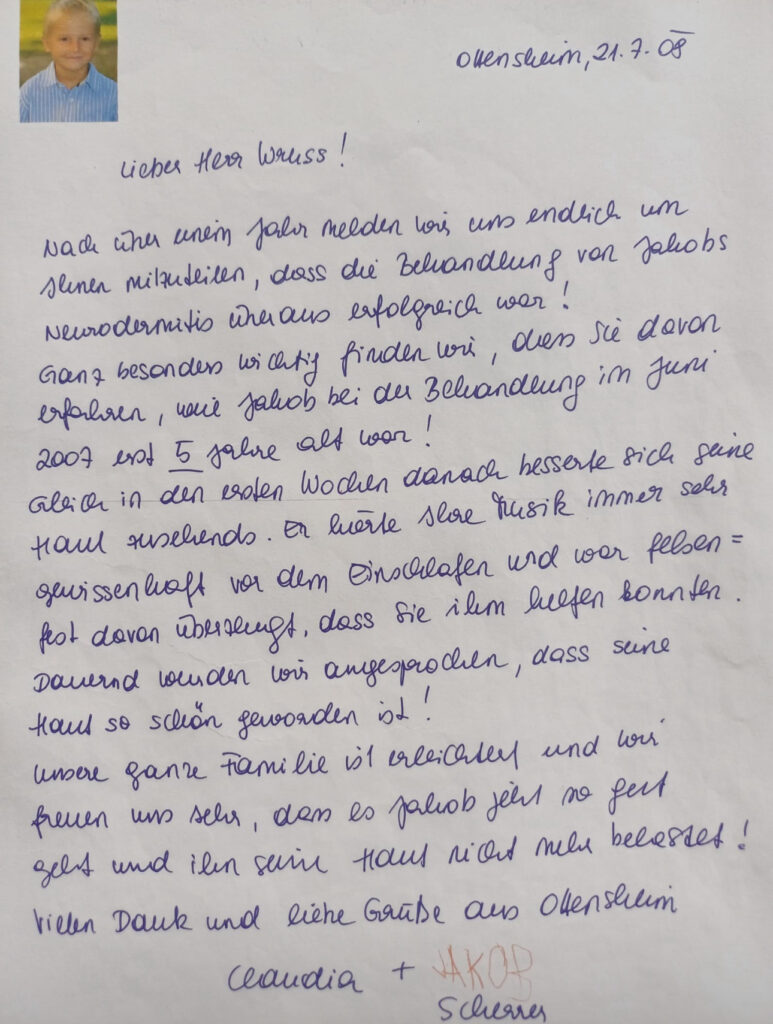 Ottensheim, 21.7.08
Lieber Herr Wruss!
Nach über einem Jahr melden wir uns endlich um
Ihnen mitzuteilen, dass die Behandlung von Jakobs
Neurodermitis überaus erfolgreich war!
Ganz besonders wichtig finden wir, dass Sie davon
erfahren, weil Jakob bei der Behandlung im Juni
2007 erst 5 Jahre alt war!
Gleich in den ersten Wochen danach besserte sich seine
Haut zusehends. Er hörte Ihre Musik immer sehr
gewissenhaft vor dem Einschlafen und war felsen=
fest davon überzeugt, dass Sie ihm helfen konnten.
Dauernd wurden wir angesprochen, dass seine
Haut so schön geworden ist!
Unsere ganze Familie ist erleichtert und wir
freuen uns sehr, dass es Jakob jetzt so gut
geht und ihn seine Haut nicht mehr belastet!
Vielen Dank und liebe Grüße aus Ottensheim
Claudia + JAKOB